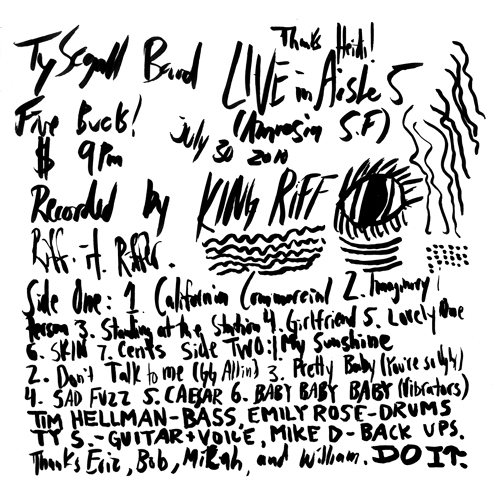 Ty Segall Band
Thanks Heidi!
LIVE in Aisle 5
Five Bucks!
(Amnesia S.F)
$ 9Pm
July 30 2010
Recorded by KING RiFF
Riff. it. Riffer.
Side One: 1. California Commercial 2. Imaginary
Person 3. Standing at the Station 4. Girlfriend 5. Lovely One
6. SKIN 7. Cents Side TWO: 1 My Sunshine
2. Don't Talk to me (GG Allin) 3. Pretty Baby (You're so Ugly)
4. SAD FUZZ 5. CAESAR 6. BABY BABY BABY (Vibrators)
TIM HELLMAN-BASS, EMILY ROSE-DRUMS
TY S.-GUITAR+VOICE, MIKE D-BACK UPS.
Thanks Eric, Bob, Mikah, and William. DO IT.